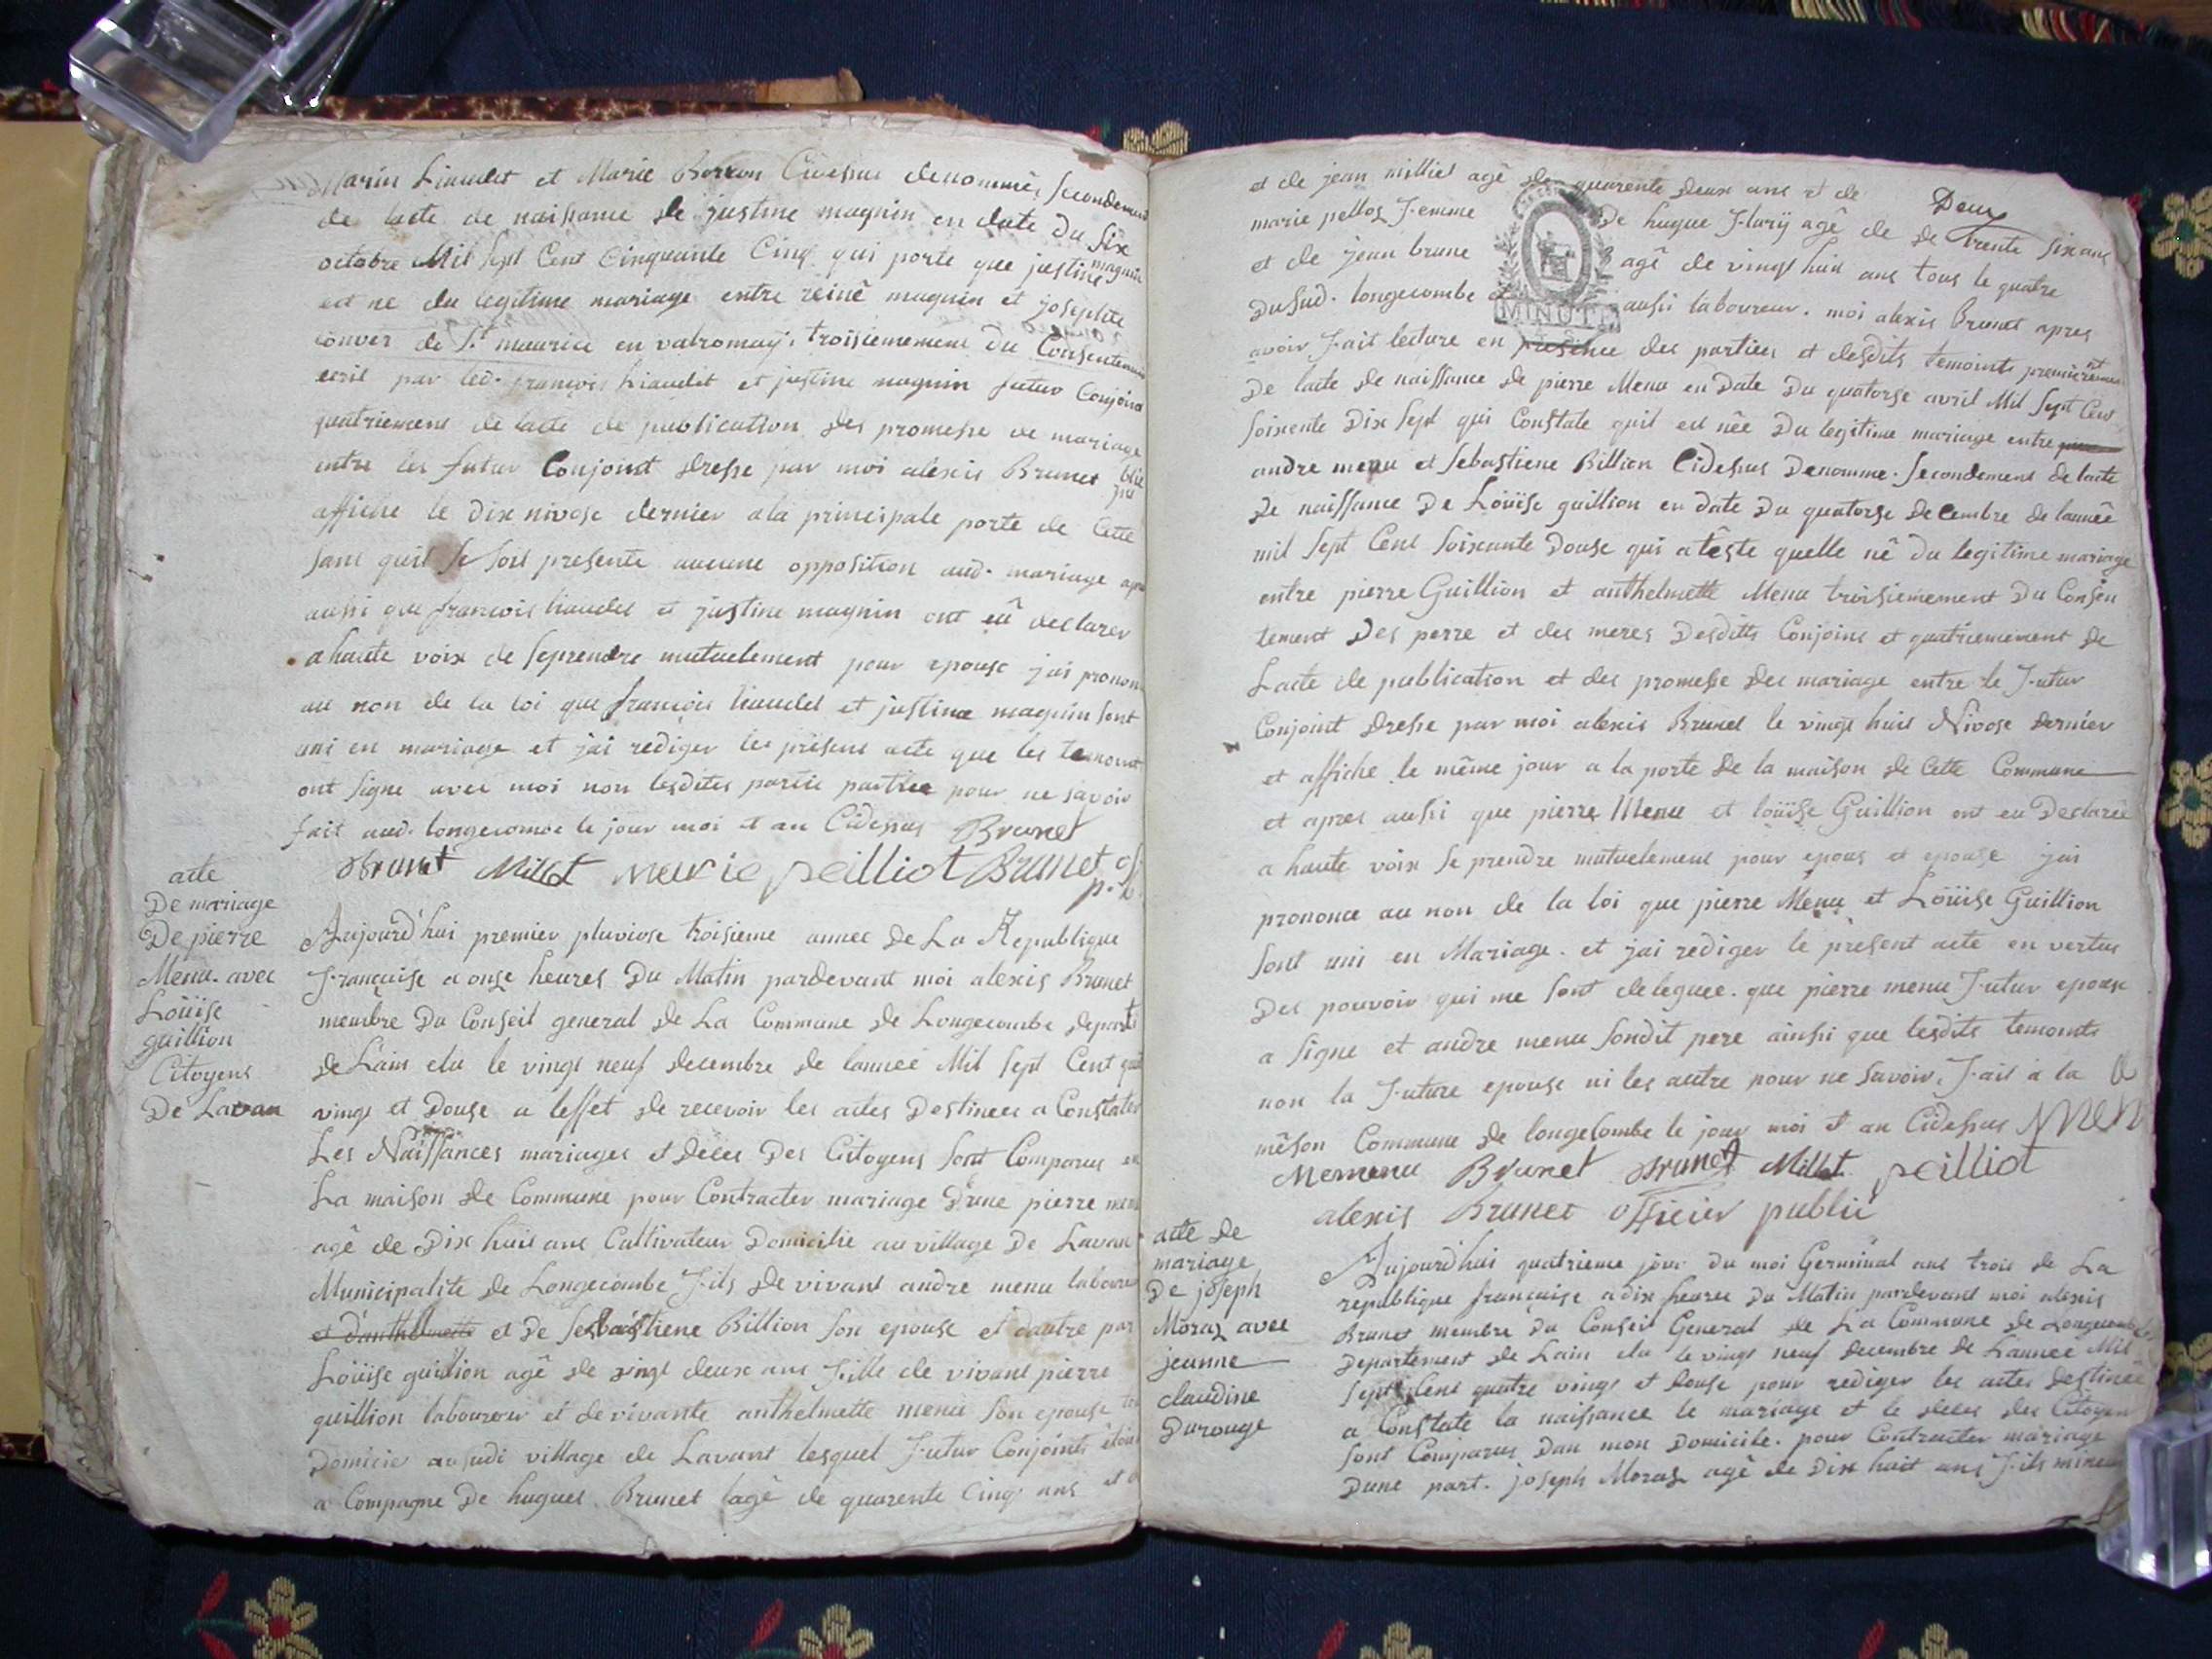 Marin Liaudet et Marie Berron Cidessus denommé, secondement
de lacte de naissance de justine magnin en date du six
octobre Mil Sept Cent Cinquante Cinq qui porte que justine magnin
est ne du legitime mariage entre reinè magnin et josephte
de St maurice en valromay, troisiemement du Consentement
ecris par led. françois Liaudet et justine magnin futur Conjoint
quatriemens de lacte de publication des promesse de mariage
entre les futur Conjoint dresse par moi alexis Brunet
affiche le dix nivose dernier ala principale porte de Cette
sans quil se soit presente aucune opposition aud. mariage apre
aussi que francois liaudet et justine magnin ont eû declarer
a haute voix de seprendre mutuelement pour epouse jai pronon
au non de la loi que françois liaudet et justine magnin sont
uni en mariage et jai rediger les présent acte que les temoint
ont signe avec moi non lesdites partie parties pour ne savoir
fait aud. longecombe le jour moi et an Cidessus Brunet
Brunet Millet Marie peilliot Brunet of. p.
acte
De mariage
De pierre
Menu. avec
Löüise
guillion
Citoyens
De Lavan
Aujourd'hui premier pluviose troisieme annee de La Republique
Française a onze heures Du Matin pardevant moi alexis Brunet
membre Du Conseil general de La Commune de Longecombe depart
de Lain elu le vingt neuf decembre de lanneé Mil sept Cent qua
vingt et Douse a leffet de recevoir les actes Destineés a Constater
Les Naissances mariages et deces Des Citoyens sont Comparus en
La maison de Commune pour Contracter mariage D'une pierre menu
agé de Dix huit ans Cultivateur Domicilié au village De Lavan
Municipalite de Longecombe Fils de vivant andre menu laboureur
et d'anthelmette et De Sebastiene Billion son epouse et dautre par
Löüise guillion agé de vingt deux ans Fille de vivant pierre
guillion laboureur et de vivante anthelmette menu son epouse
Domicie ausudi village de Lavant lesquel Futur Conjoint étoit
a Compagne De hugues Brunet lagé de quarente Cinq ans et
et de jean milliet agé de quarente deux ans et de
Deux
marie pellos Femme De hugue Flurÿ agé de de trente six ans
et de jean brune agé de vingt huit ans tous le quatre
Dusud. longecombe aussi laboureur. moi alexis Brunet apres
avoir Fait lecture en présence des parties et desdits temoints premièrement
De lacte de naissance de pierre Menu en Date Du quatorse avril Mil Sept Cent
soixente Dix Sept qui Constate quil est née Du legitime mariage entre
andre menu et Sebastiene Billion Cidessus Denomme. Secondement de lacte
de naissance De Löüise guillion en Date Du quatorse decembre de lanneé
mil Sept Cent Soixante Douse qui atèste quelle né du legitime mariage
entre pierre Guillion et anthelmette Menu troisiemement Du Consen
tement Des perre et des meres Desditts Conjoins et quatriemement de
Lacte de publication et des promesse des mariage entre le Futur
Conjoint dresse par moi alexis Brunet le vingt huit Nivose dernier
et affiche le même jour a la porte de la maison de Cette Commune
et apres aussi que pierre Menu et loüise Guillion ont eu Declareé
a haute voix se prendre mutuelement pour epous et epouse jai
prononce au non de la loi que pierre Menu et Löüise Guillion
sont uni en Mariage. et jai rediger le present acte en vertus
Des pouvoir qui me sont deleguee. que pierre menu Futur epoux
a signe et andre menu sondit pere ainsi que lesdits temoints
non la Future epouse ni les autre pour ne Savoir. Fait a la
mêson Commune de longecombe le jour moi et an Cidessus Men
Memenu Brunet Brunet Millet peilliot
alexis Brunet officier public
acte de
mariage
De joseph
Moraz avec
jeanne
claudine
Durouge
Aujourd'hui quatrieme jour du moi Germinal ans trois de La
republique francaise adix heures Du Matin pardevant moi alexis
Brunet membre du Conseil General de La Commune de Longecombe
Departement de Lain elu le vingt neuf decembre de Lannee Mil
Sept Cent quatre vingt et Douse pour rediger les actes destineé
a Constate la naissance le mariage et le deces des Citoyen
sont Comparus Dan mon Domicile. pour Contracter mariage
Dune part. joseph Moraz agé de Dix huit ans Fils mineur
MINUTE